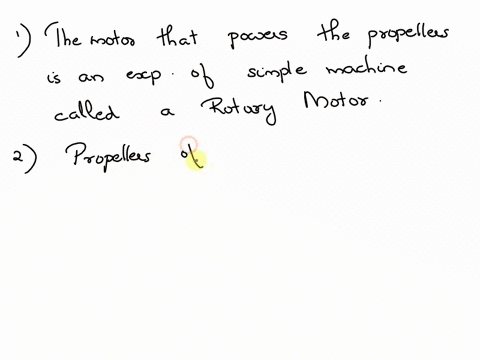 1) The motor that powers the propellers
is an exp. of simple machine
called a Rotary Motor.
2) Propellers of